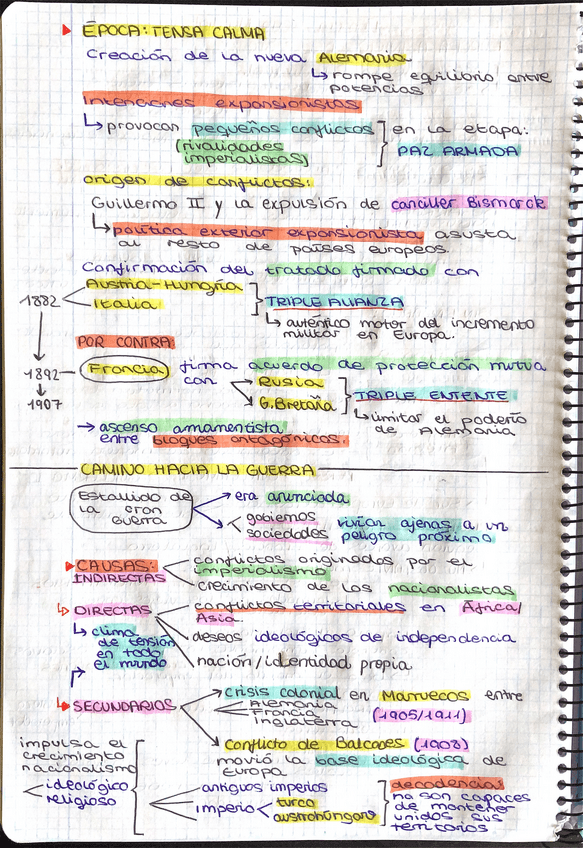 ÉPOCA: TENSA CALMA
Creación de la nueva Alemania
↳ rompe equilibrio entre
potencias
Intenciones expansionistas
↳ provocan pequeños conflictos
(rivalidades
imperialistas)
en la etapa:
PAZ ARMADA
origen de conflictos:
Guillermo II y la expulsión de canciller Bismarck
↳ política exterior expansionista asusta
al resto de países europeos.
Confirmación del tratado firmado con
1882
Austria-Hungría
Italia
TRIPLE ALIANZA
↳ auténtico motor del incremento
militar en Europa.
POR CONTRA:
1892 Francia firma acuerdo de protección mutua
con
1907
Rusia
G.Bretaña
TRIPLE ENTENTE
↳ limitar el poderío
de Alemania
→ ascenso armamentista
entre bloques antagónicos.
CAMINO HACIA LA GUERRA
Estallido de
la Gran
Guerra
era anunciada
gobiernos
sociedades
vivían ajenas a un
peligro próximo
CAUSAS:
INDIRECTAS
conflictos originados por el
imperialismo
crecimiento de los nacionalistas
DIRECTAS
conflictos territoriales en África/
Asia.
↳ clima
de tensión
en todo
el mundo
deseos ideológicos de independencia
nación/identidad propia
SECUNDARIOS
crisis colonial en Marruecos entre
Alemania
Francia
Inglaterra
(1905/1911)
conflicto de Balcanes (1908)
movió la base ideológica de
Europa
impulsa el
crecimiento
nacionalismo
ideológico
religioso
antiguos imperios
imperio
turco
austrohúngaro
decadencia:
no son capaces
de mantener
unidos sus
territorios